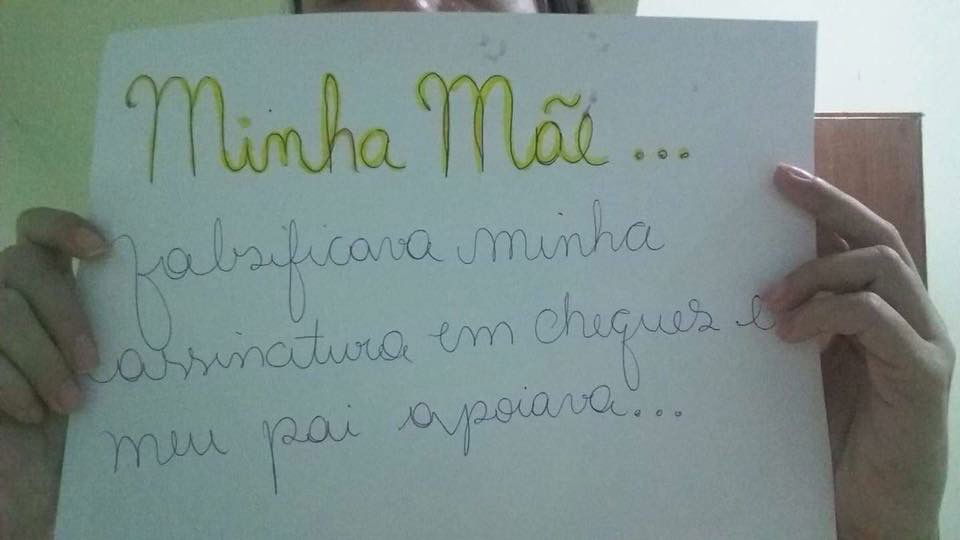 Minha Mãe...
falsificava minha
assinatura em cheques e
meu pai apoiava...